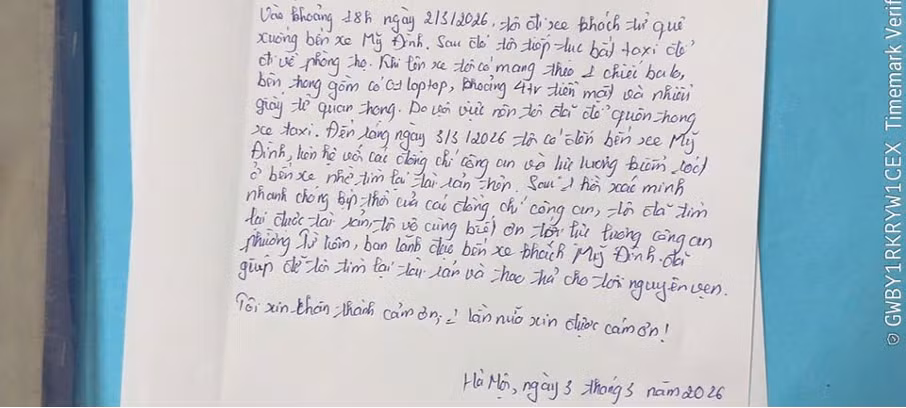 Vào khoảng 18h ngày 2/3/2026, tôi đi xe khách từ quê
xuống bến xe Mỹ Đình. Sau đó tôi tiếp tục bắt taxi để
đi về phòng trọ. Khi lên xe tôi có mang theo 1 chiếc balo,
bên trong gồm có laptop, khoảng 4tr tiền mặt và nhiều
giấy tờ quan trọng. Do vội vã nên tôi đã để quên trong
xe taxi. Đến sáng ngày 3/3/2026 tôi có đến bến xe Mỹ
Đình, liên hệ với các đồng chí công an và lực lượng
ở bến xe nhờ tìm lại tài sản trên. Sau 1 hồi xác minh
nhanh chóng kịp thời của các đồng chí công an, tôi đã tìm
lại được tài sản, tôi vô cùng biết ơn tới lực lượng công an
phường Từ Liêm, ban lãnh đạo bến xe khách Mỹ Đình đã
giúp đỡ tôi tìm lại tài sản và trao trả cho tôi nguyên vẹn.
Tôi xin chân thành cảm ơn, 1 lần nữa xin được cảm ơn!
Hà Nội, ngày 3 tháng 3 năm 2026
© GWBY1RKRYW1CEX Timemark Verif